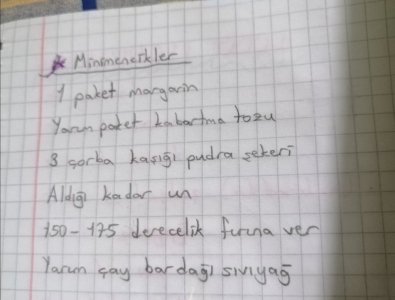 * Minmenekler
1 paket margarin
Yarım paket kabartma tozu
3 çorba kaşığı pudra şekeri
Aldığı kadar un
150-175 derecelik fırına ver
Yarım çay bardağı sıvıyağ